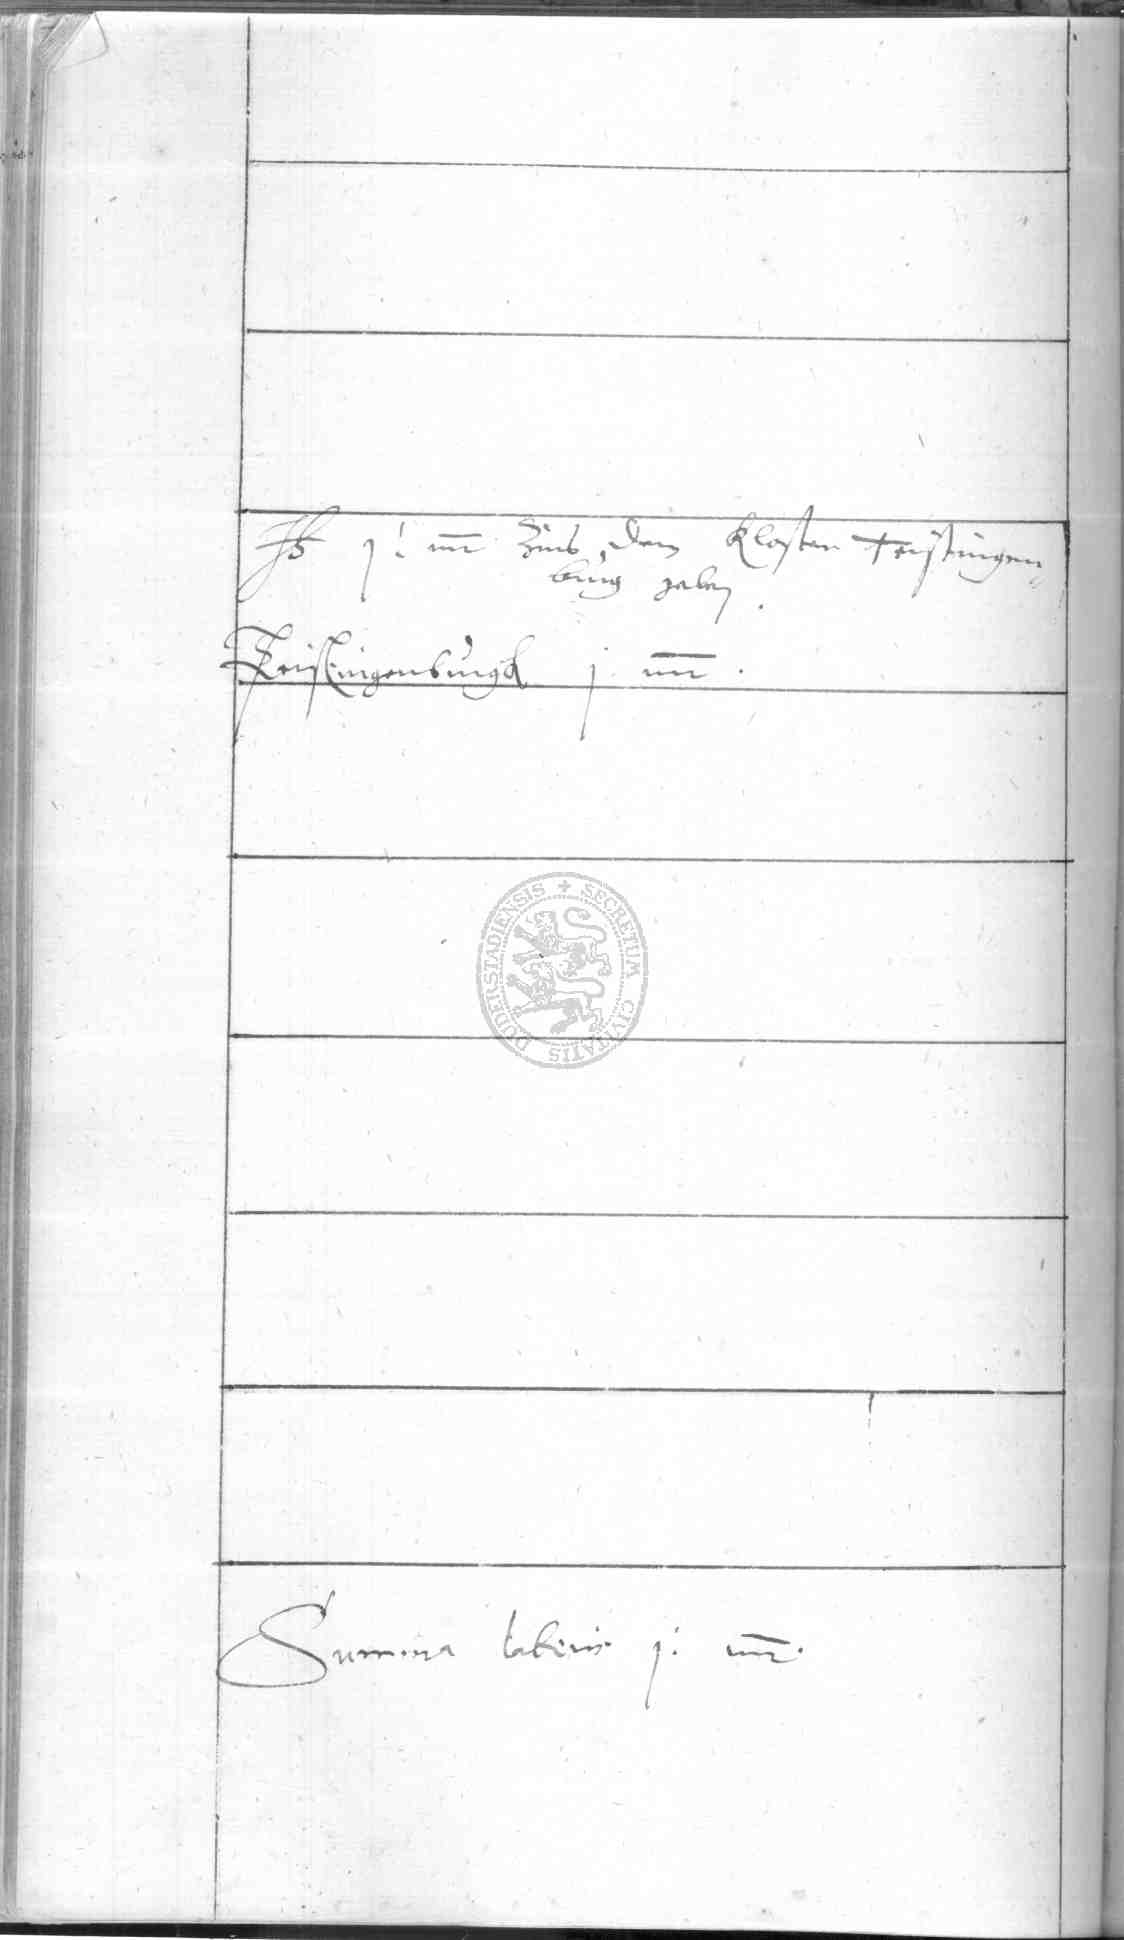 j mr Zins dem Kloster Teistingen
burg geben.
Teistingenburgk j mr.
SECRETUM CIVITATIS DUDERSTADIENSIS
Summa lateris j. mr.